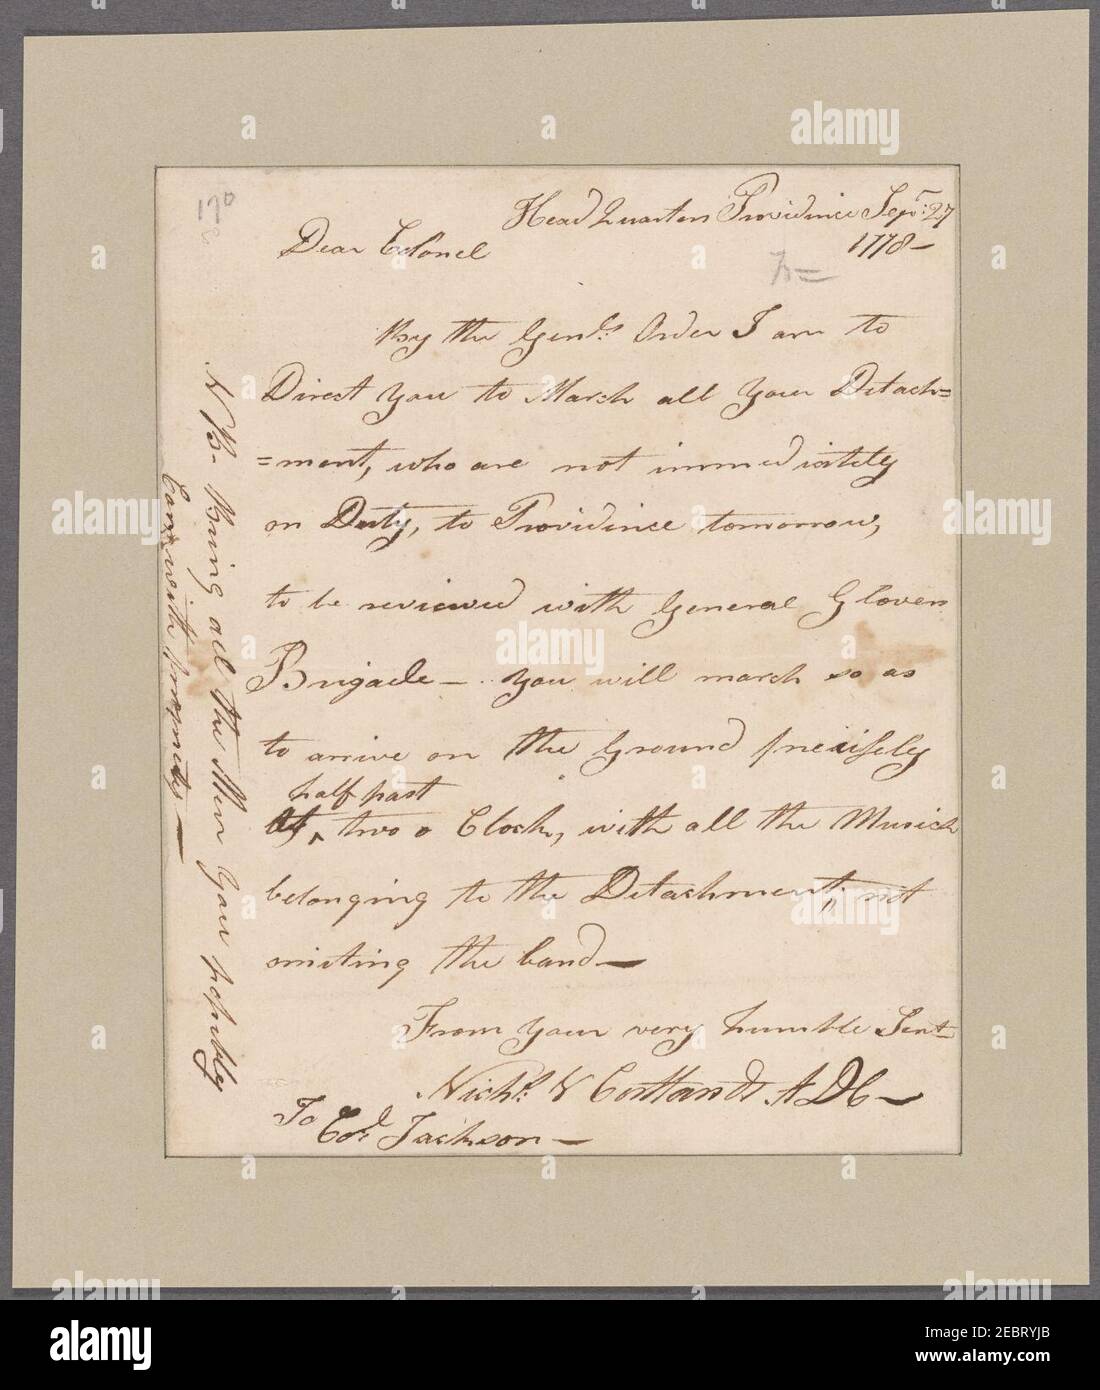 Head Quarters Providince Sepr: 27
1778—
Dear Colonel
By the Genls. Order I am to
Direct you to March all your Detach=
=ment, who are not immediately
on Duty, to Providince tomorrow,
to be reviewed with General Glovers
Brigade — you will march so as
to arrive on the Ground precisely
half past
At ^ two o Clock, with all the Musick
belonging to the Detachment, not
omiting the band—
From your very humble Sert
Nichs. V Cortlandt ADC—
To Col. Jackson—
N B- Bring all the Men you possibly
Can with propriety—
170
alamy
Image ID: 2EBRYJB
www.alamy.com